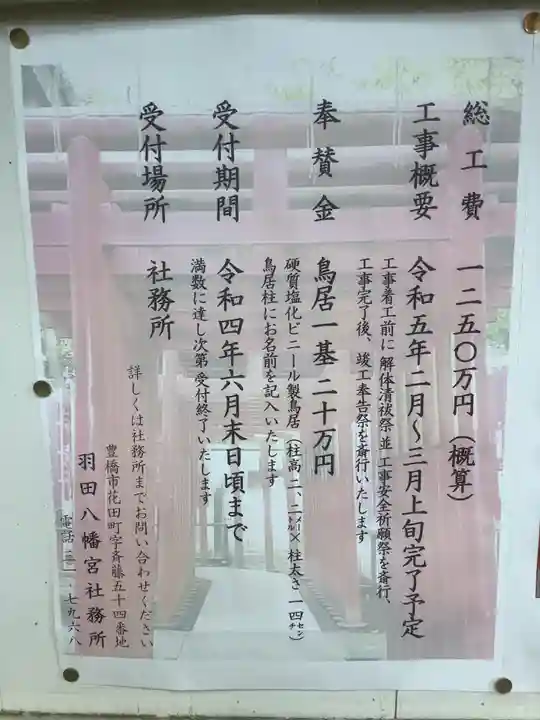 総工費　一二五〇万円（概算）
工事概要　令和五年二月～三月上旬完了予定
工事着工前に 解体清祓祭 並 工事安全祈願祭を斎行、
工事完了後、竣工奉告祭を斎行いたします
奉賛金　鳥居一基 二十万円
硬質塩化ビニール製鳥居（柱高二、二メートル×柱太さ一四センチ）
鳥居柱にお名前を記入いたします
受付期間　令和四年六月末日頃まで
満数に達し次第 受付終了いたします
受付場所　社務所
詳しくは社務所までお問い合わせください
豊橋市花田町字斉藤五十四番地
羽田八幡宮社務所
電話 三一・七九六八